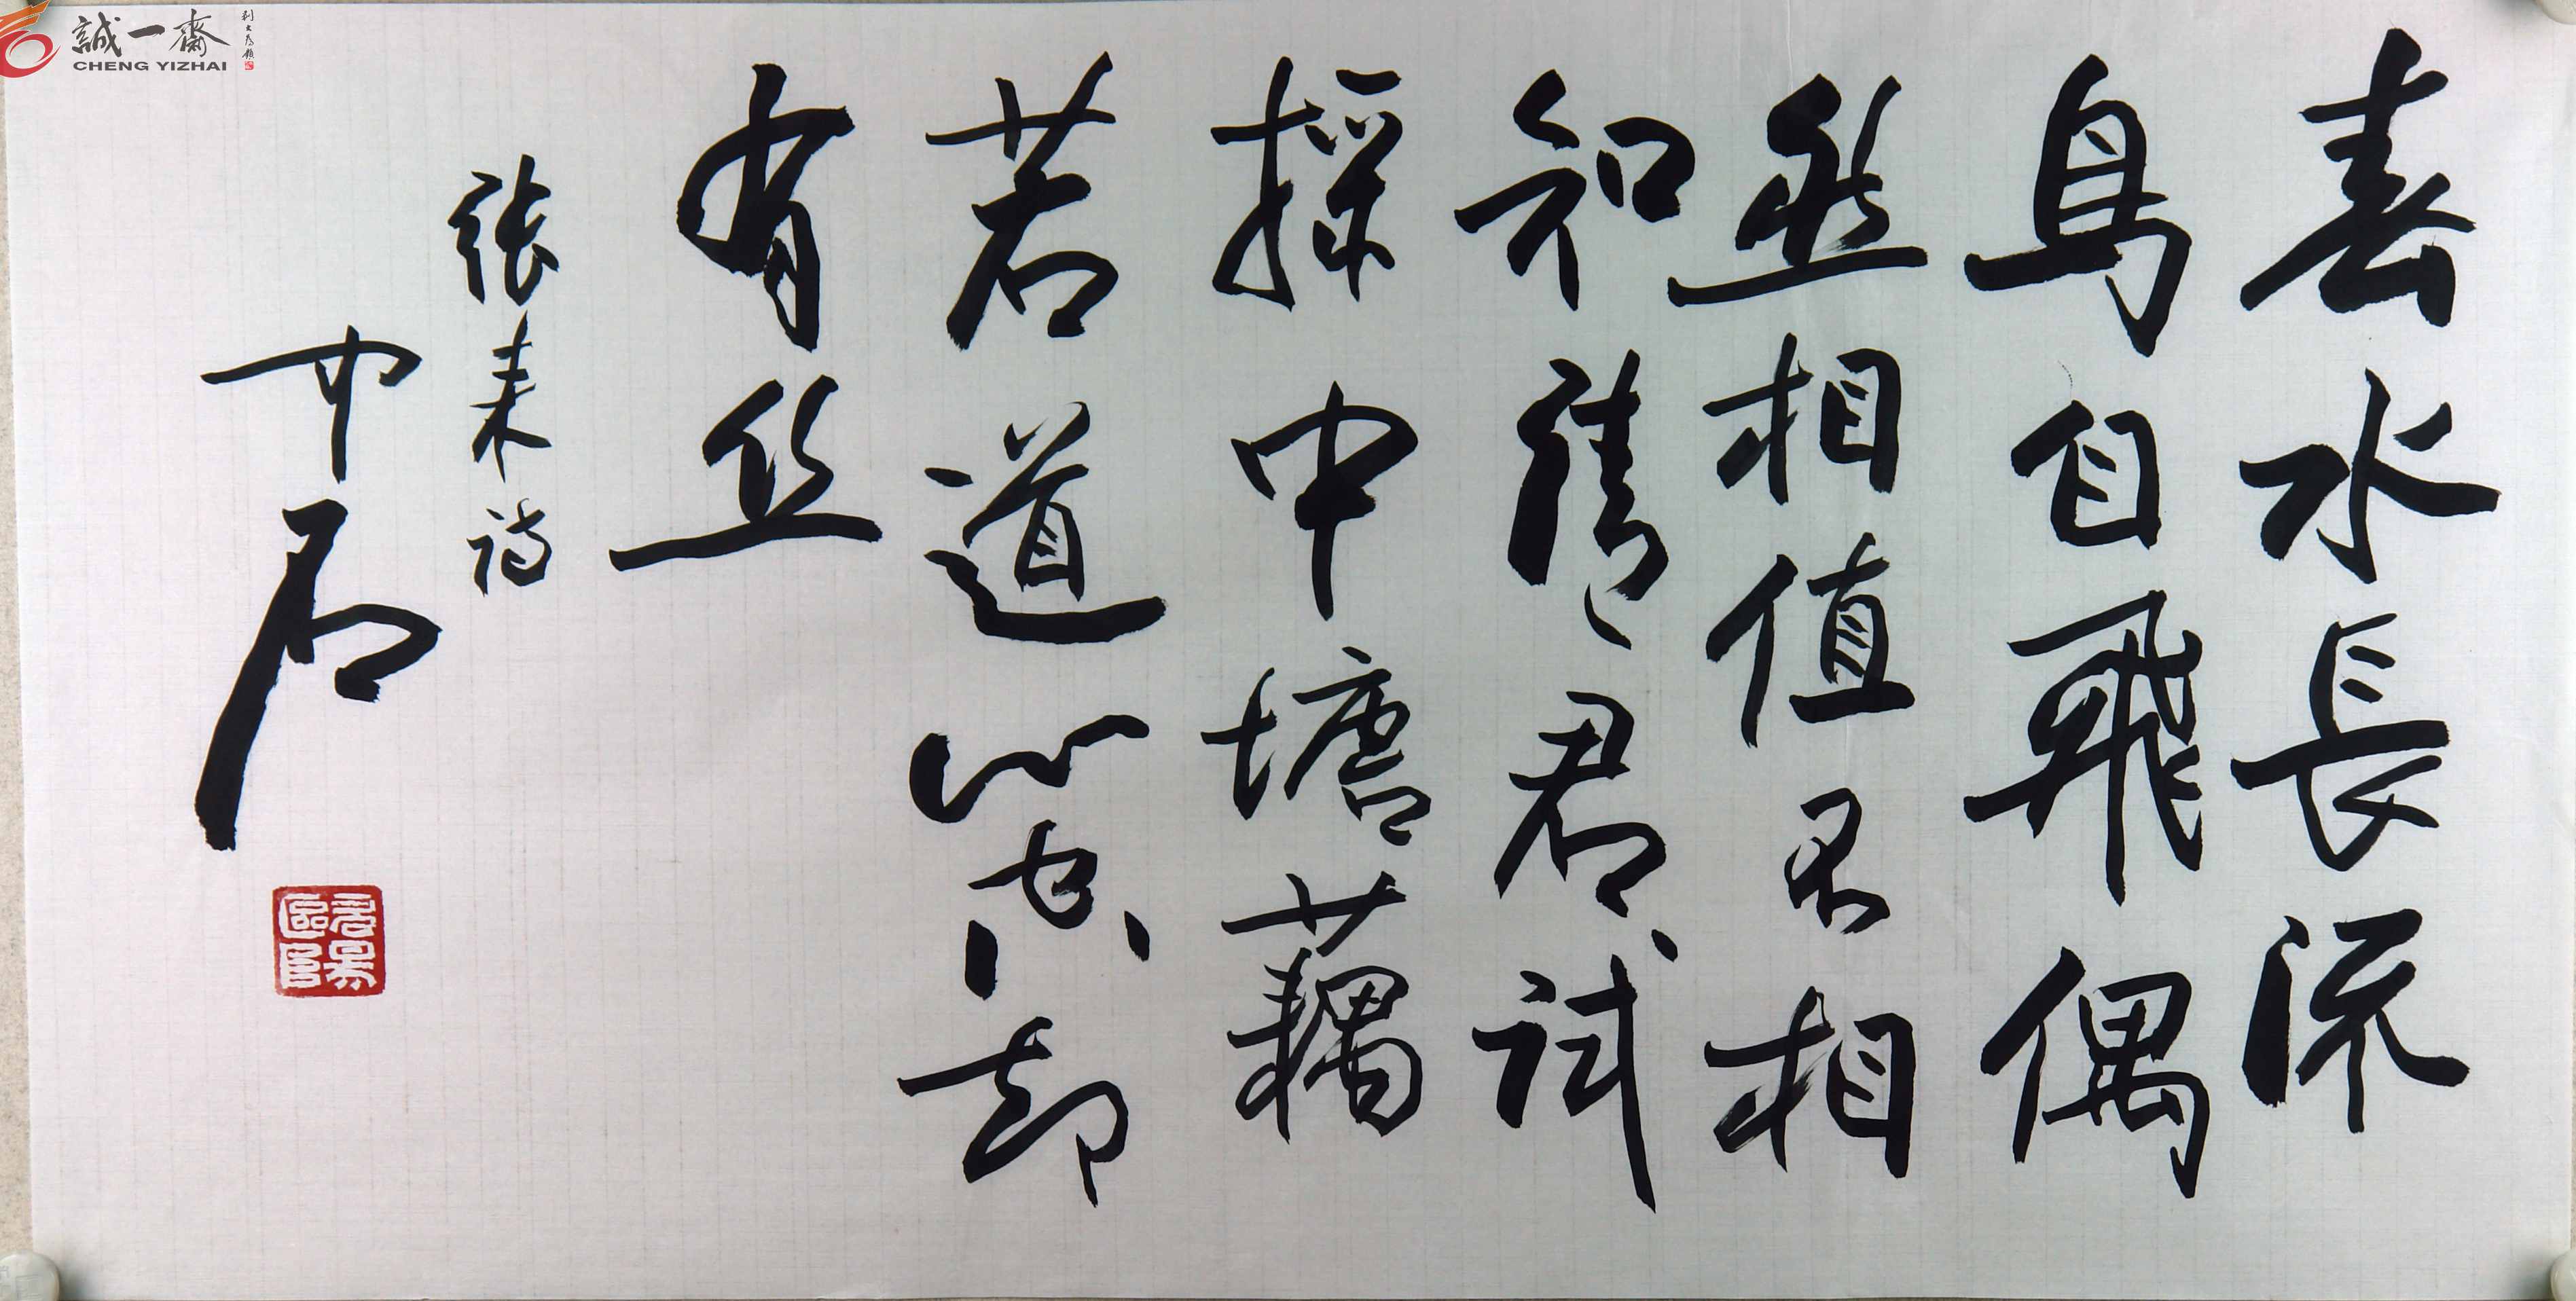 誠一齋
CHENG YIZHAI
春水長流
鳥自飛偶
然相值不相
知請君試
採中塘藕
若道心空却
有丝
张耒诗
中石